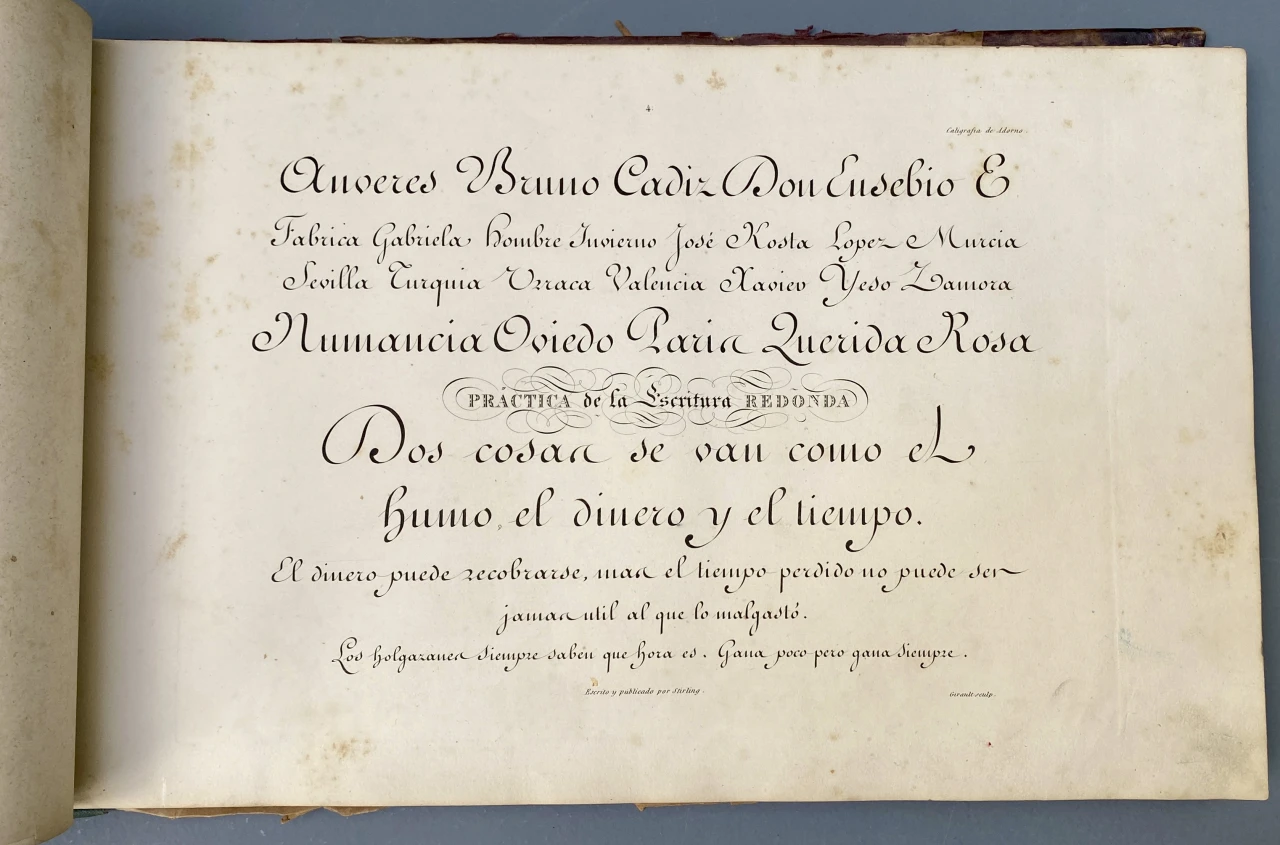 4.
Caligrafia de Adorno.
Anveres Bruno Cadiz Don Eusebio E
Fabrica Gabriela Hombre Invierno José Kosta Lopez Murcia
Sevilla Turquia Urraca Valencia Xavier Yeso Zamora
Numancia Oviedo Paris Querida Rosa
PRÁCTICA de la Escritura REDONDA
Dos cosas se van como el
humo, el dinero y el tiempo.
El dinero puede recobrarse, mas el tiempo perdido no puede ser
jamas util al que lo malgastó.
Los holgazanes siempre saben que hora es. Gana poco pero gana siempre.
Escrito y publicado por Stirling.
Girault sculp.